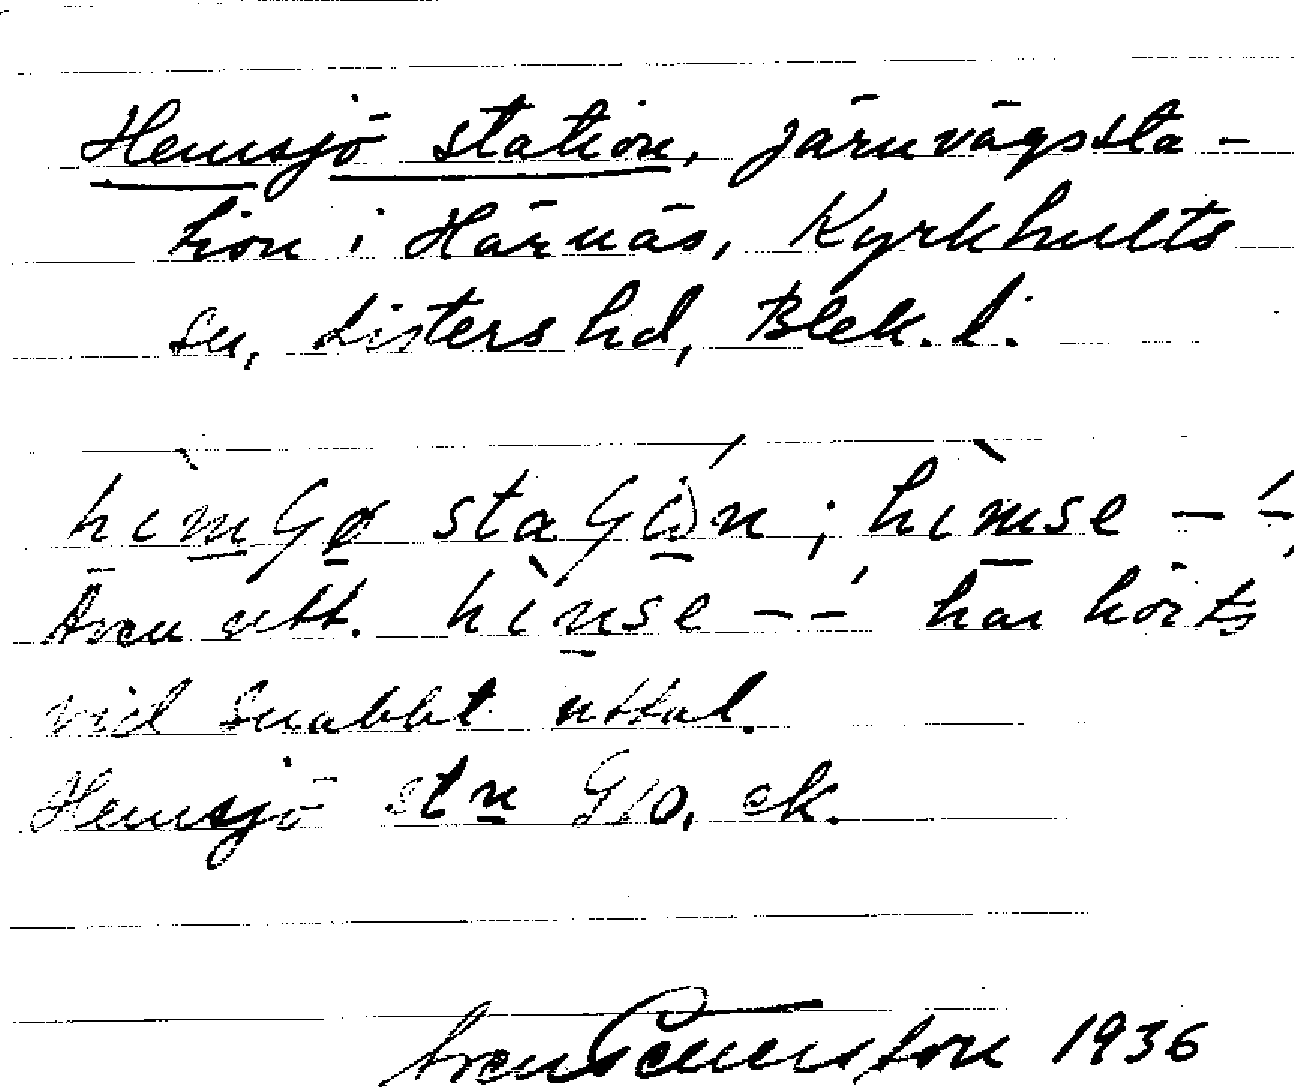 Hemsjö station, järnvägssta-
tion i Härnäs, Kyrkhults
sn, Listers hd, Blek. l.
Även utt. hìnse -- ́ har hörts
vid snabbt uttal.
Hemsjö stn G10, ek.
1936